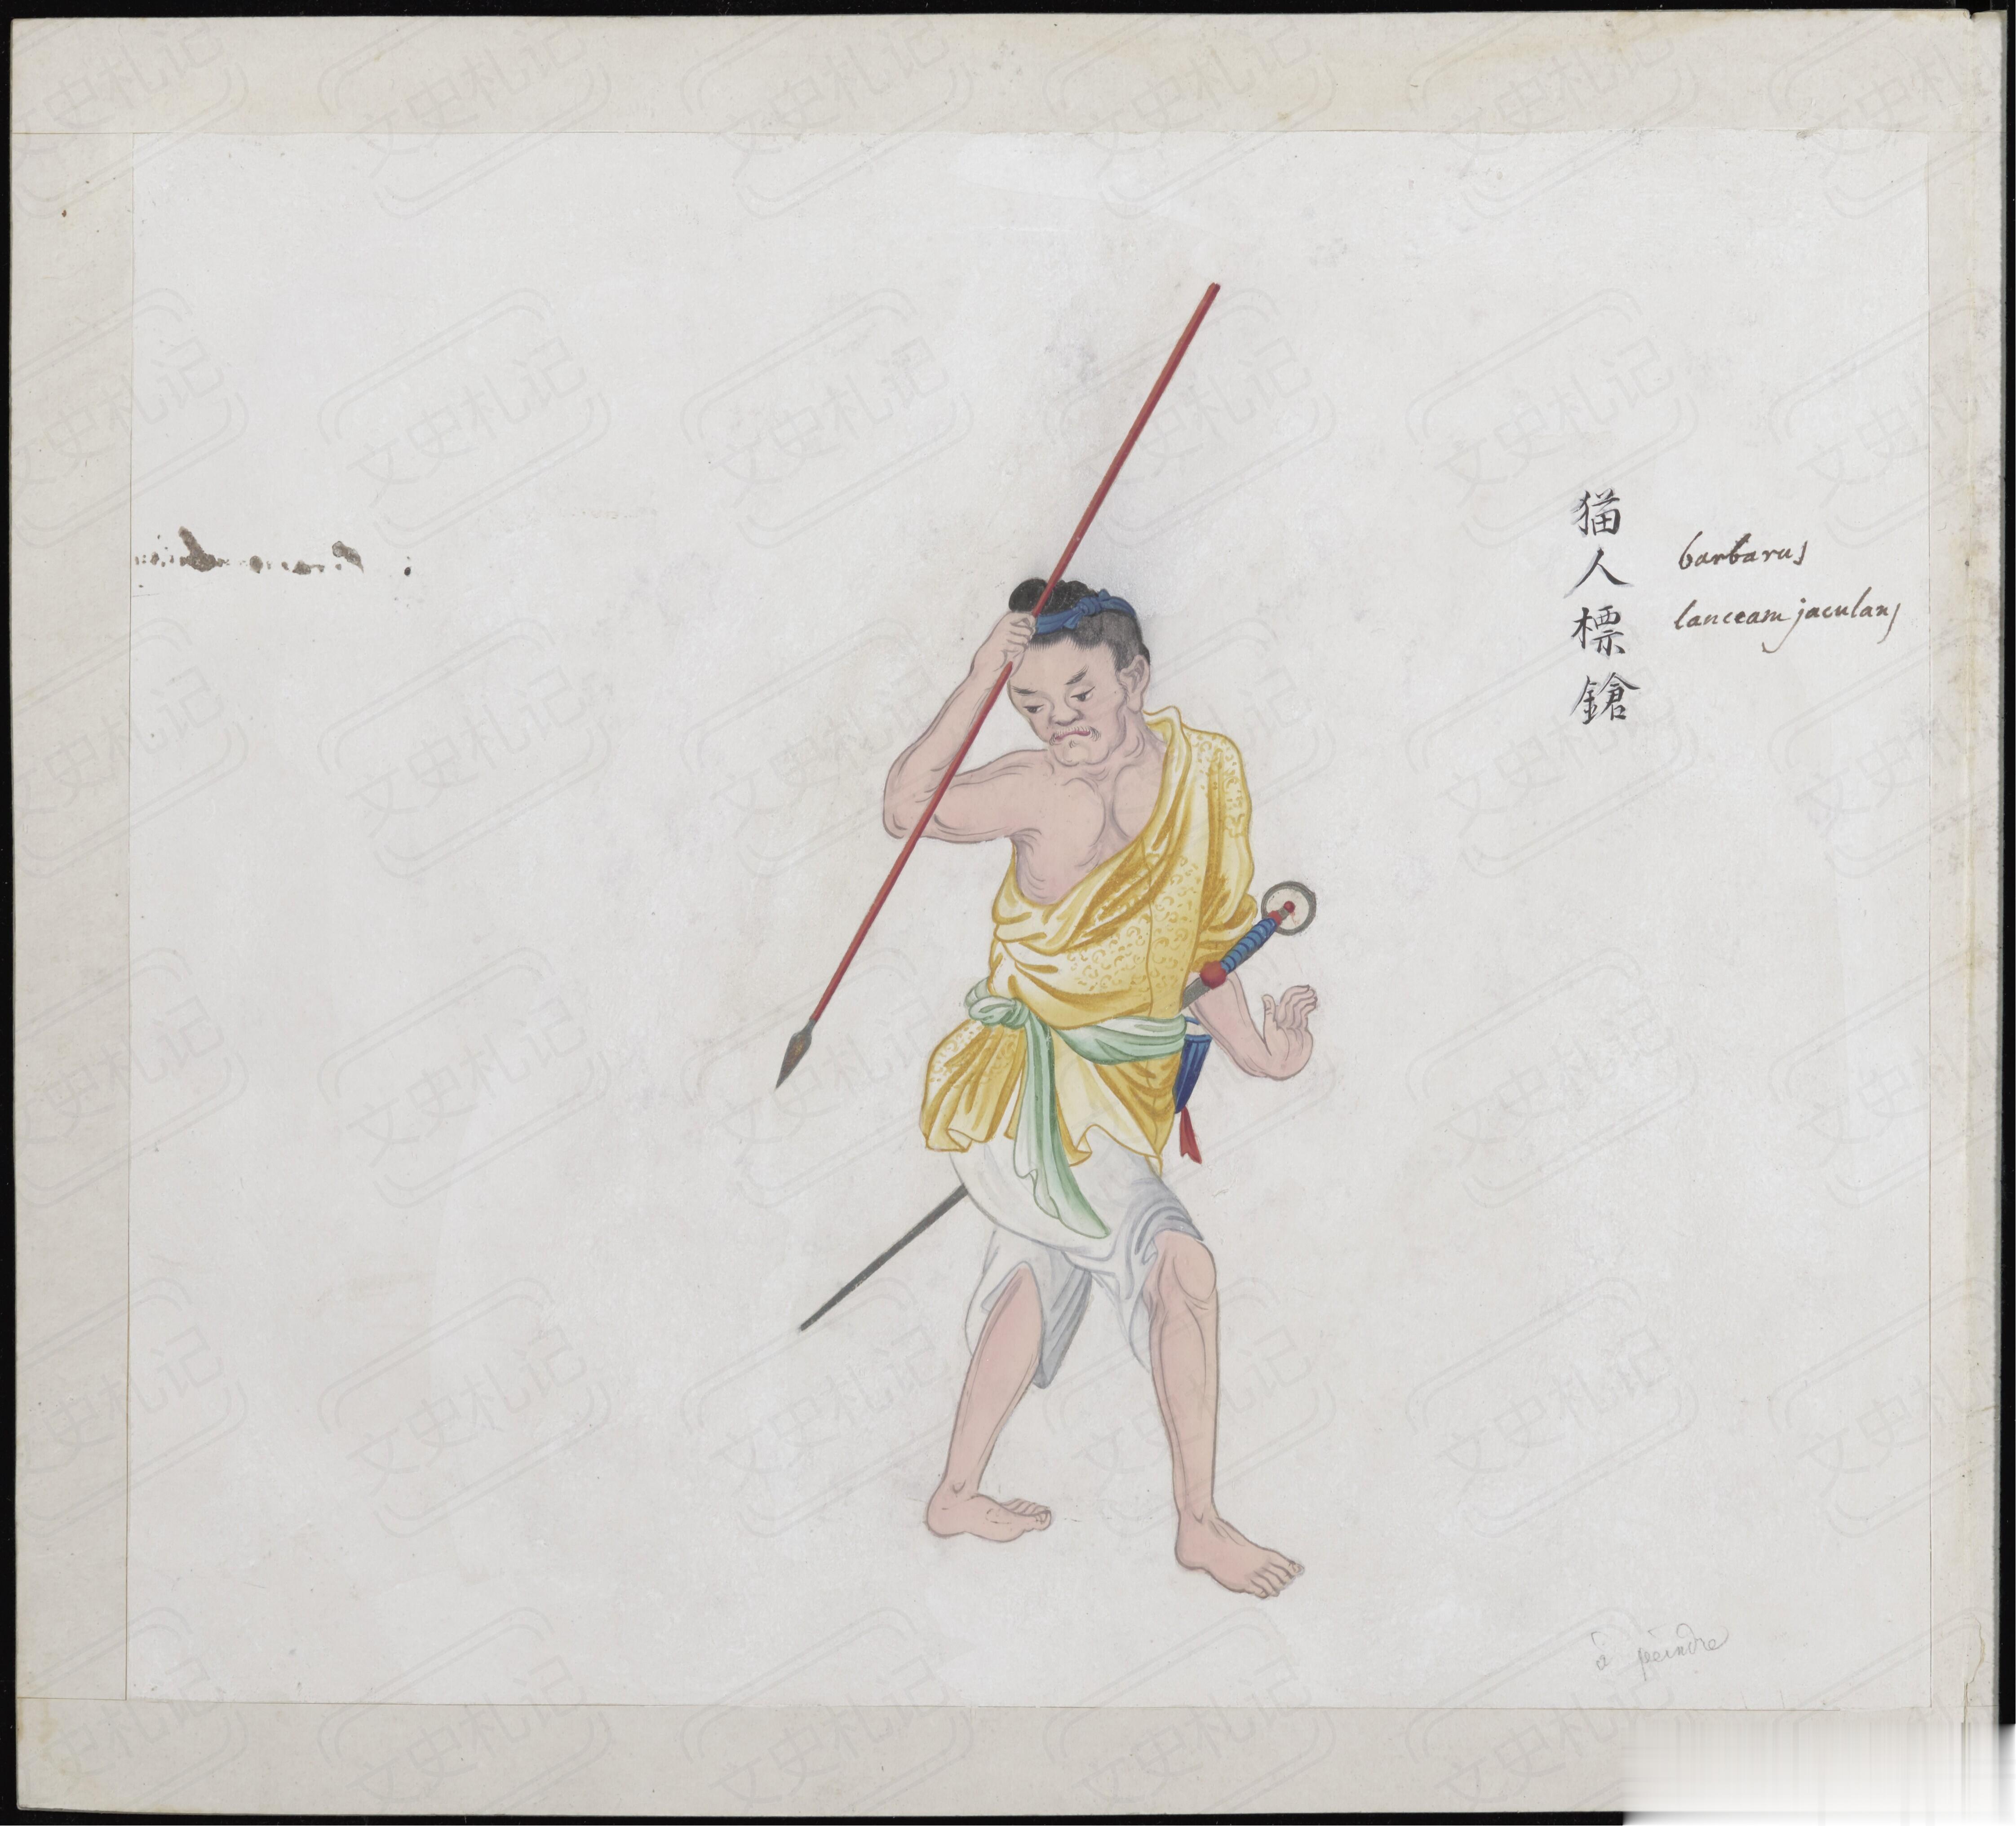 猫人標鎗
barbarus
lanceam jaculans
à peindre
文史札记